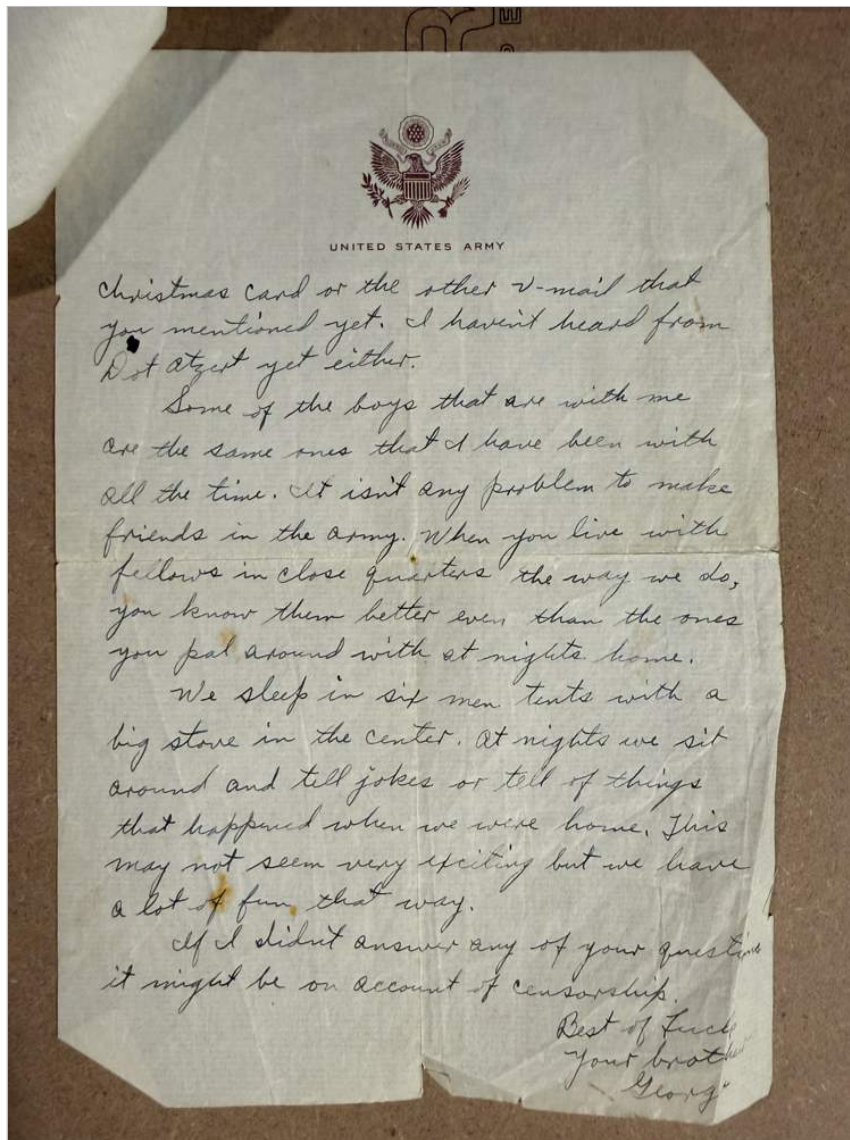 UNITED STATES ARMY
Christmas card or the other V-mail that
you mentioned yet. I haven't heard from
Dot Atzert yet either.
Some of the boys that are with me
are the same ones that I have been with
all the time. It isn't any problem to make
friends in the army. When you live with
fellows in close quarters the way we do,
you know them better even than the ones
you pal around with at nights home.
We sleep in six men tents with a
big stove in the center. At nights we sit
around and tell jokes or tell of things
that happened when we were home. This
may not seem very exciting but we have
a lot of fun that way.
If I didn't answer any of your questions
it might be on account of censorship.
Best of Luck
Your brother
George